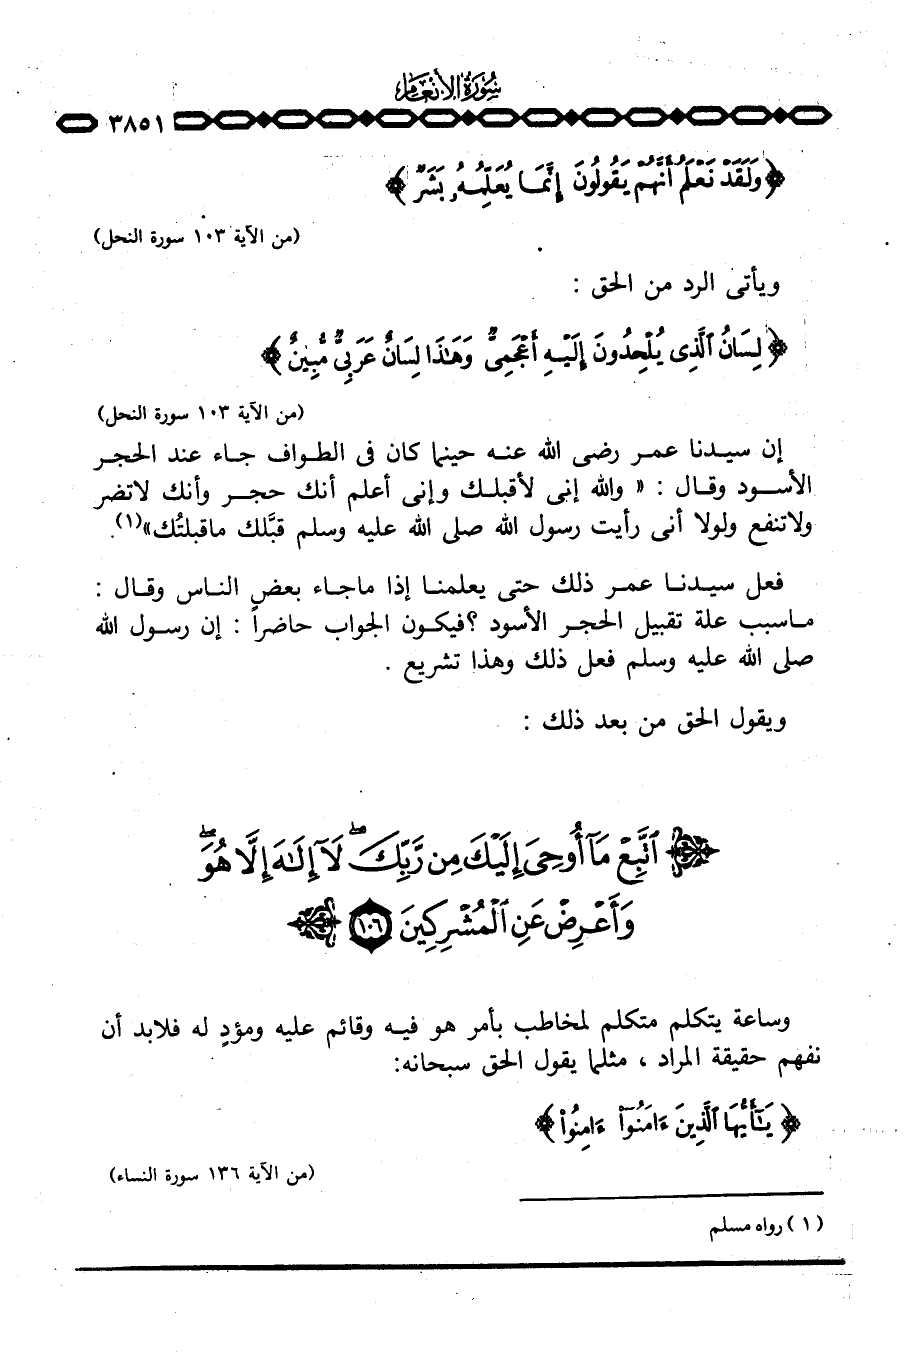 سورة الأنعام
٣٨٥١
﴿ وَلَقَدْ نَعْلَمُ أَنَّهُمْ يَقُولُونَ إِنَّمَا يُعَلِّمُهُۥ بَشَرٌ ﴾
(من الآية ١٠٣ سورة النحل)
ويأتى الرد من الحق :
﴿ لِسَانُ ٱلَّذِى يُلْحِدُونَ إِلَيْهِ أَعْجَمِىٌّ وَهَٰذَا لِسَانٌ عَرَبِىٌّ مُّبِينٌ ﴾
(من الآية ١٠٣ سورة النحل)
إن سيدنا عمر رضى الله عنه حينما كان فى الطواف جاء عند الحجر
الأسود وقال : « والله إنى لأقبلك وإنى أعلم أنك حجر وأنك لاتضر
ولاتنفع ولولا أنى رأيت رسول الله صلى الله عليه وسلم قبَّلك ماقبلتُك»(١).
فعل سيدنا عمر ذلك حتى يعلمنا إذا ماجاء بعض الناس وقال :
ماسبب علة تقبيل الحجر الأسود ؟فيكون الجواب حاضراً : إن رسول الله
صلى الله عليه وسلم فعل ذلك وهذا تشريع .
ويقول الحق من بعد ذلك :
ٱتَّبِعْ مَآ أُوحِىَ إِلَيْكَ مِن رَّبِّكَ ۖ لَآ إِلَٰهَ إِلَّا هُوَ ۖ
وَأَعْرِضْ عَنِ ٱلْمُشْرِكِينَ ١٠٦
وساعة يتكلم متكلم لمخاطب بأمر هو فيه وقائم عليه ومؤدٍ له فلابد أن
نفهم حقيقة المراد ، مثلما يقول الحق سبحانه:
﴿ يَٰٓأَيُّهَا ٱلَّذِينَ ءَامَنُوٓا۟ ءَامِنُوا۟ ﴾
(من الآية ١٣٦ سورة النساء)
(١) رواه مسلم